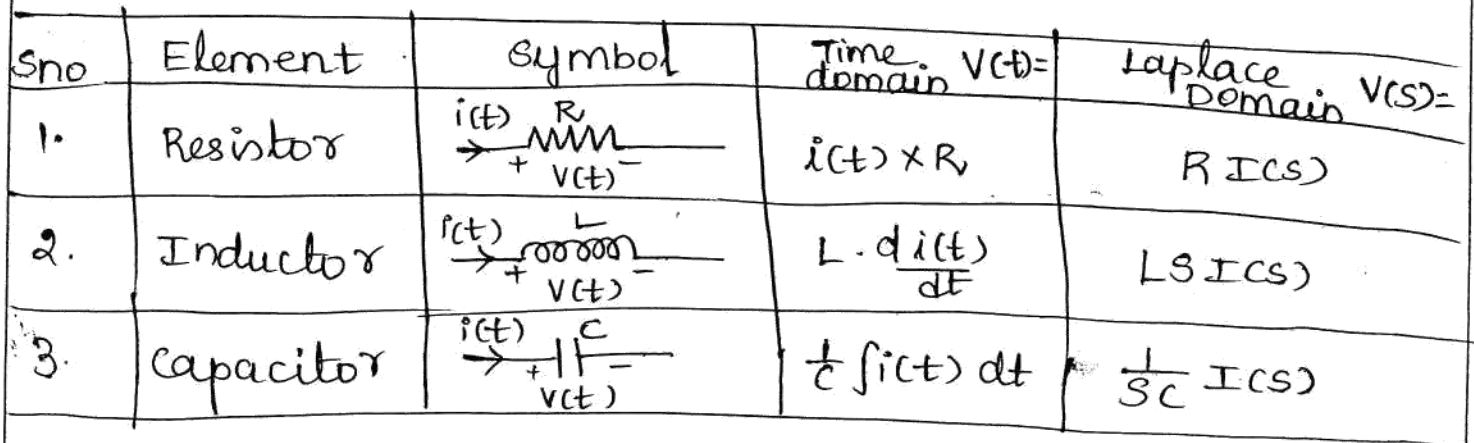 Sno Element Symbol Time domain V(t)= Laplace Domain V(S)=
1. Resistor i(t) R + V(t) - i(t) × R R I(S)
2. Inductor i(t) L + V(t) - L . d i(t)/dt LS I(S)
3. Capacitor i(t) C + V(t) - 1/C ∫i(t) dt 1/SC I(S)